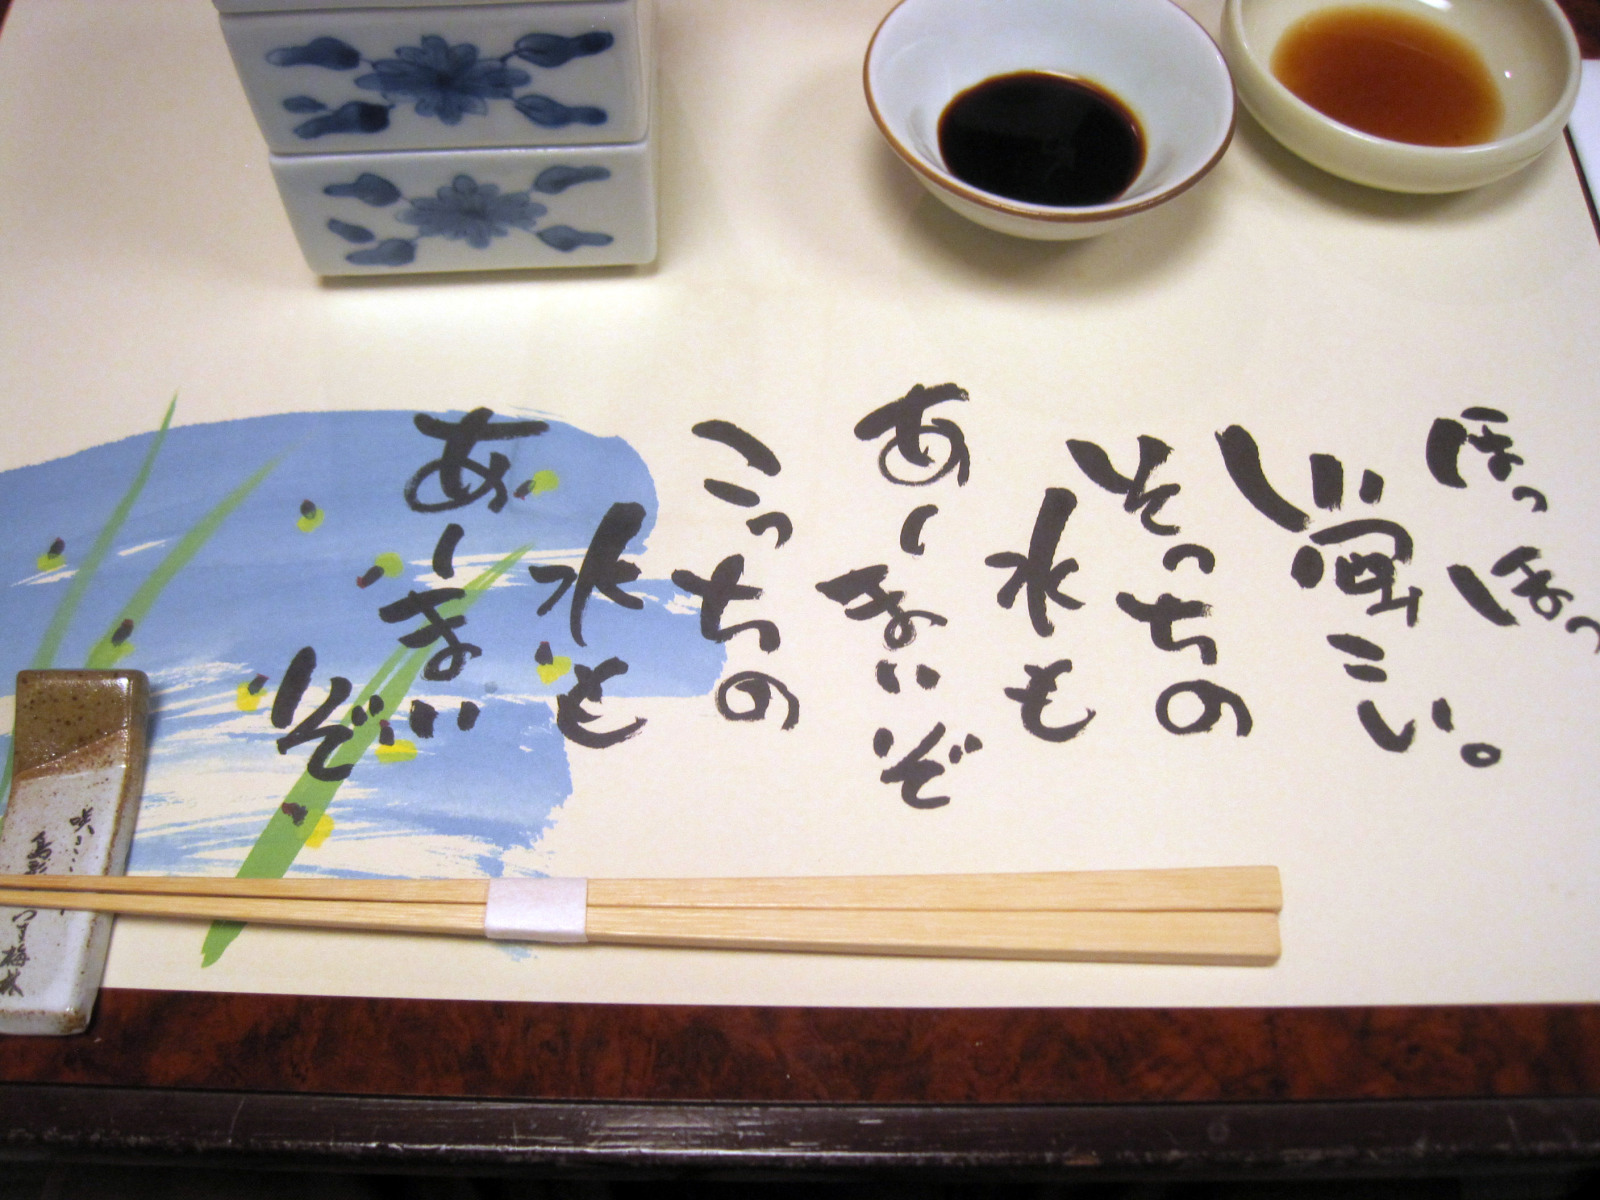 ほっ ほっ
蛍こい。
そっちの
水も
あーまいぞ
こっちの
水も
あーまい
ぞ
梅林